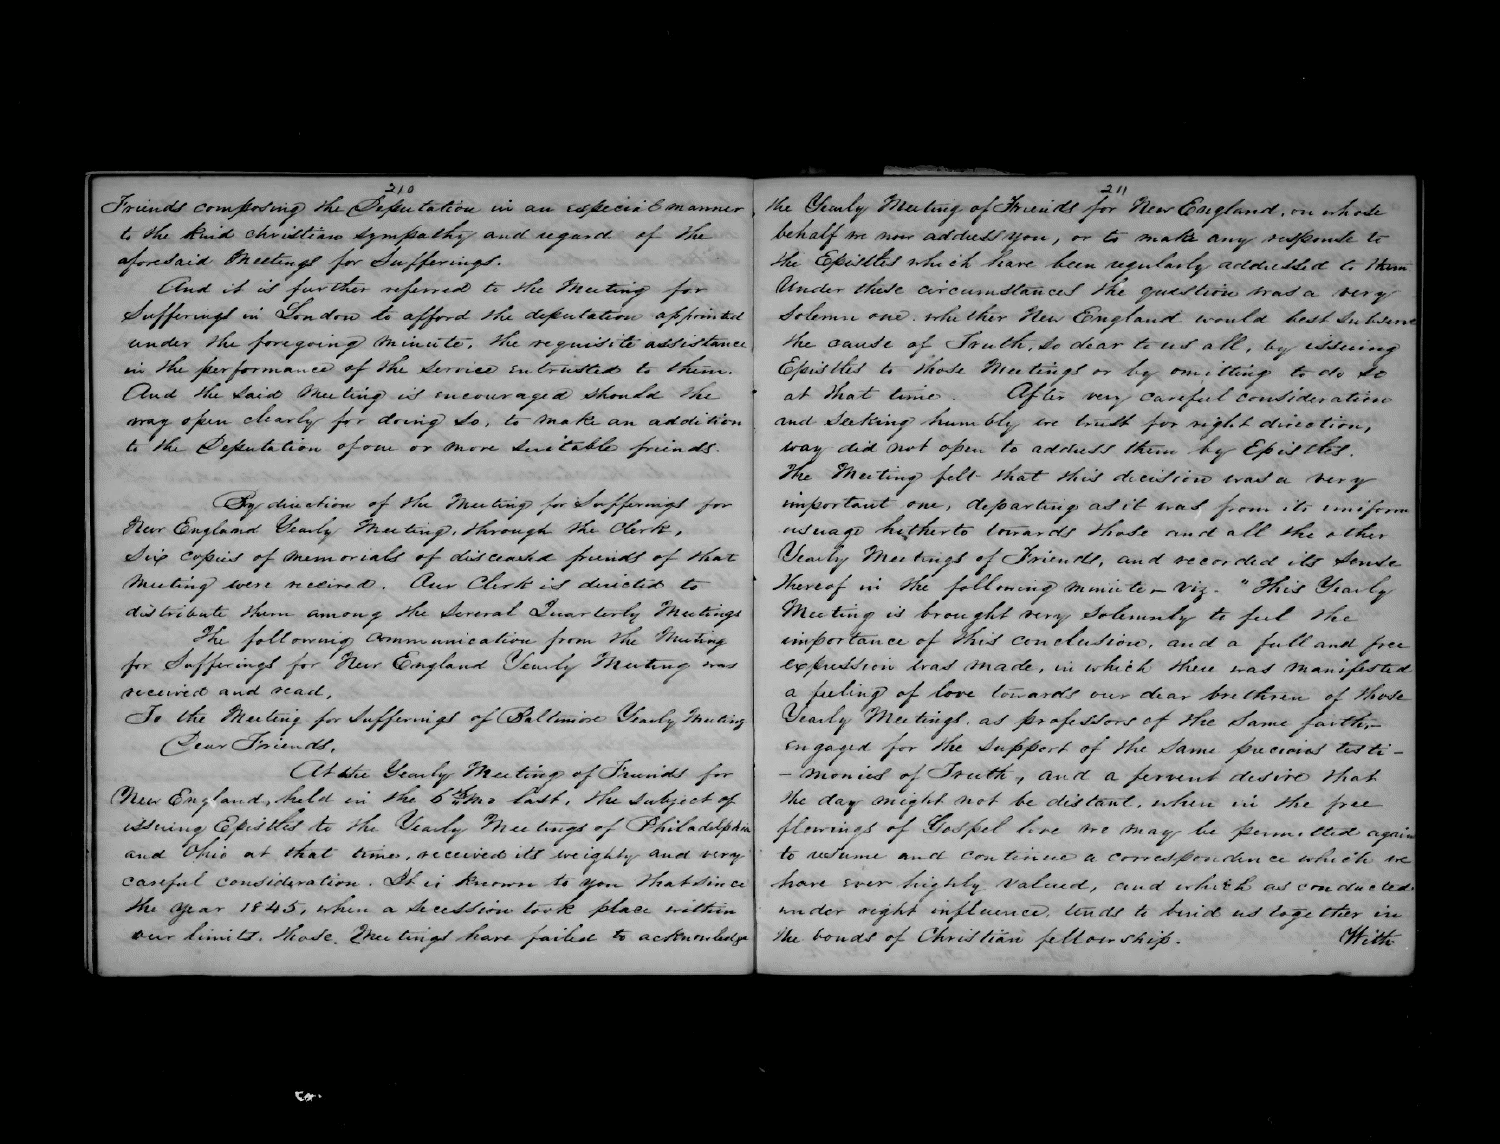 210
Friends composing the Deputation in an especial manner
to the kind christian sympathy and regard of the
aforesaid Meetings for Sufferings.
And it is further referred to the Meeting for
Sufferings in London to afford the deputation appointed
under the foregoing minute, the requisite assistance
in the performance of the service entrusted to them.
And the said Meeting is encouraged should the
way open clearly for doing so, to make an addition
to the Deputation of one or more suitable friends.
By direction of the Meeting for Sufferings for
New England Yearly Meeting, through the Clerk,
six copies of memorials of disceased friends of that
meeting were received. Our Clerk is directed to
distribute them among the several Quarterly Meetings
The following communication from the Meeting
for Sufferings for New England Yearly Meeting was
received and read.
To the Meeting for Sufferings of Baltimore Yearly Meeting
Dear Friends,
At the Yearly Meeting of Friends for
New England, held in the 6th Mo last, the subject of
issuing Epistles to the Yearly Meetings of Philadelphia
and Ohio at that time, received its weighty and very
careful consideration. It is known to you that since
the year 1845, when a secession took place within
our limits, those Meetings have failed to acknowledge
211
the Yearly Meeting of Friends for New England, on whose
behalf we now address you, or to make any response to
the Epistles which have been regularly addressed to them
Under these circumstances the question was a very
solemn one, whether New England would best subserve
the cause of Truth, so dear to us all, by issuing
Epistles to those Meetings or by omitting to do so
at that time. After very careful consideration
and seeking humbly we trust for right direction,
way did not open to address them by Epistles.
The Meeting felt that this decision was a very
important one, departing as it was from its uniform
useuage hitherto towards those and all the other
Yearly Meetings of Friends, and recorded its sense
thereof in the following minute – viz. "This Yearly
Meeting is brought very solemnly to feel the
importance of this conclusion, and a full and free
expression was made, in which there was manifested
a feeling of love towards our dear brethren of those
Yearly Meetings, as professors of the same faith,–
engaged for the support of the same precious testi-
-monies of Truth, and a fervent desire that
the day might not be distant, when in the free
flowings of Gospel love we may be permitted again
to resume and continue a correspondence which we
have ever highly valued, and which as conducted
under right influence, tends to bind us together in
the bonds of Christian fellowship. With